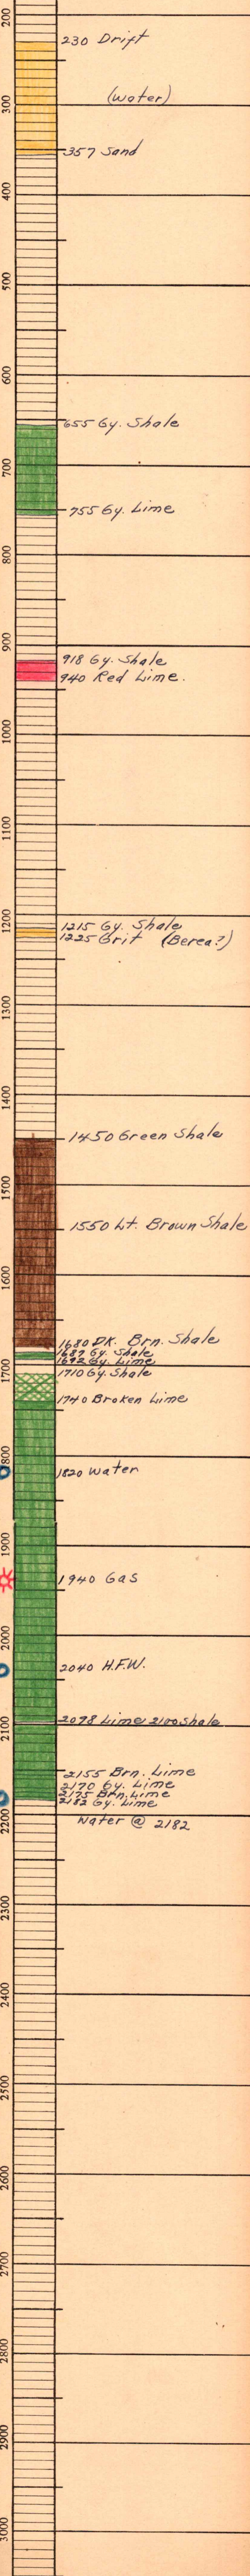 200
230 Drift
(water)
300
357 Sand
400
500
600
655 Gy. Shale
700
755 Gy. Lime
800
900
918 Gy. Shale
940 Red Lime.
1000
1100
1200
1215 Gy. Shale
1225 Grit (Berea?)
1300
1400
1450 Green Shale
1500
1550 Lt. Brown Shale
1600
1680 DK. Brn. Shale
1687 Gy. Shale
1692 Gy. Lime
1700
1710 Gy. Shale
1740 Broken Lime
1800
1820 Water
1900
1940 Gas
2000
2040 H.F.W.
2098 Lime 2100 Shale
2100
2155 Brn. Lime
2170 Gy. Lime
2175 Brn. Lime
2182 Gy. Lime
2200
Water @ 2182
2300
2400
2500
2600
2700
2800
2900
3000